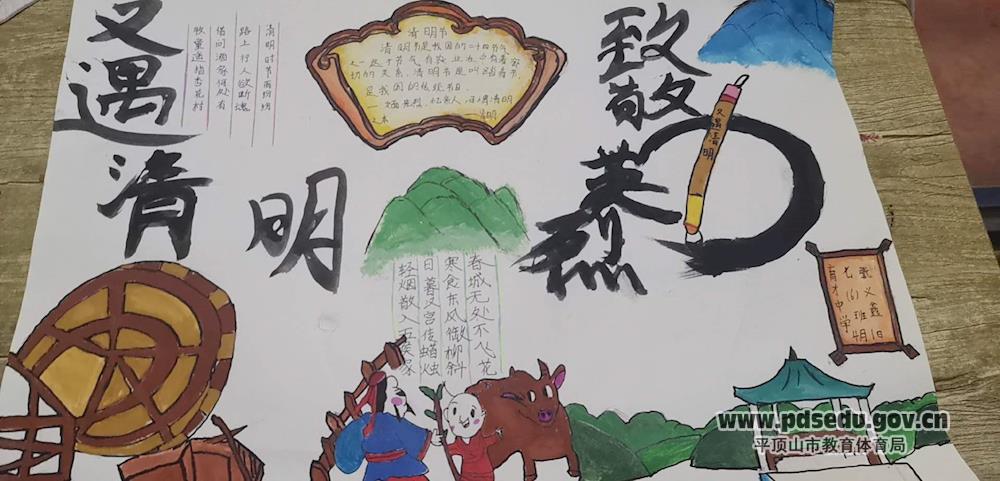 又遇清明
致敬英烈
清明时节雨纷纷
路上行人欲断魂
借问酒家何处有
牧童遥指杏花村
清明节
清明节是我国的二十四节气
是我国的传统节日
又遇清明
春城无处不飞花
寒食东风御柳斜
日暮汉宫传蜡烛
轻烟散入五侯家
育才中学
七(6)班
4月1日
www.pdsedu.gov.cn
平顶山市教育体育局